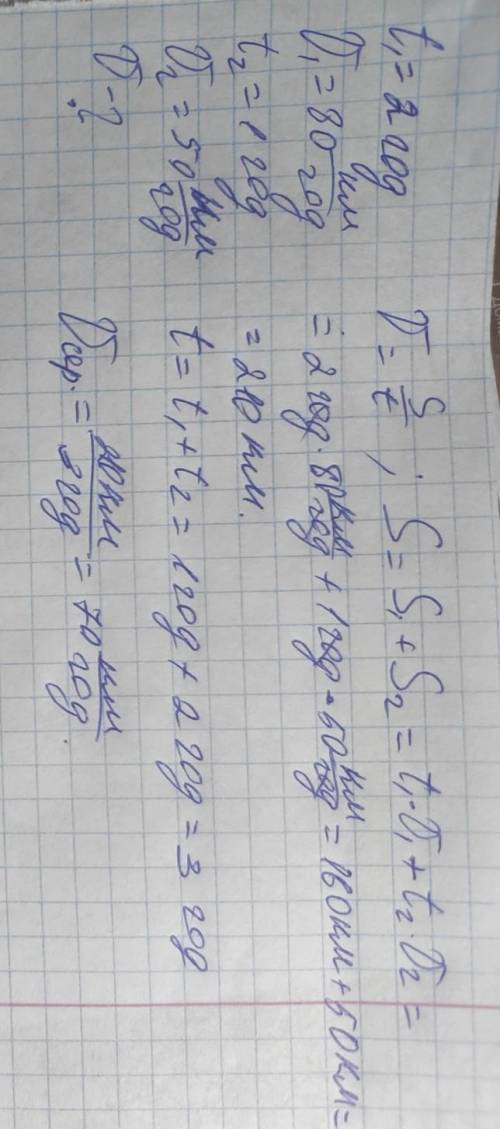 t₁ = 2 год
V₁ = 80 км/год
t₂ = 1 год
V₂ = 50 км/год
V - ?
V = S/t ; S = S₁ + S₂ = t₁·V₁ + t₂·V₂ =
= 2 год · 80 км/год + 1 год · 50 км/год = 160 км + 50 км =
= 210 км.
t = t₁ + t₂ = 1 год + 2 год = 3 год
Vсер. = 210 км/3 год = 70 км/год.